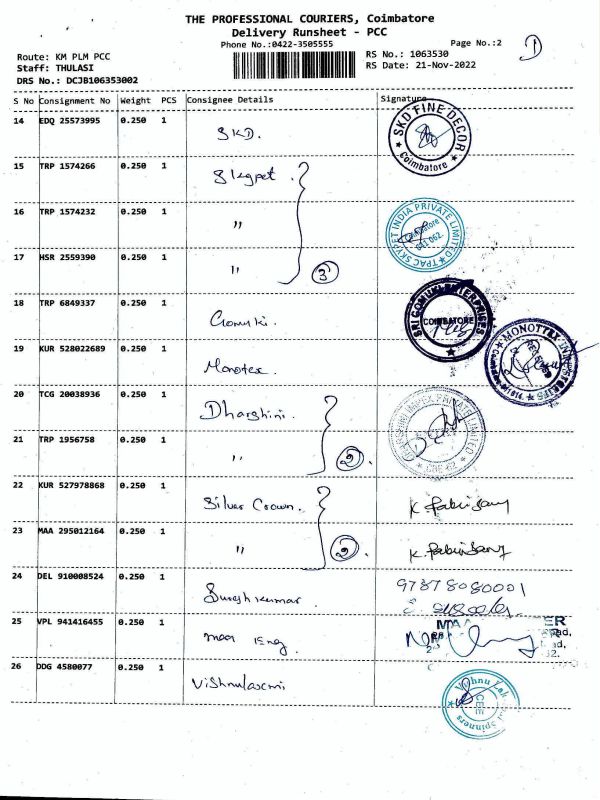 THE PROFESSIONAL COURIERS, Coimbatore
Delivery Runsheet - PCC
Phone No.:0422-3505555
Page No.:2
1
Route: KM PLM PCC
RS No.: 1063530
Staff: THULASI
RS Date: 21-Nov-2022
DRS No.: DCJB106353002
S No Consignment No Weight PCS Consignee Details Signature
14 EDQ 25573995 0.250 1 SKD.
SKD FINE DECOR
Coimbatore
15 TRP 1574266 0.250 1 Skypet
16 TRP 1574232 0.250 1 "
TPAC SKYPET INDIA PRIVATE LIMITED
Coimbatore
641 062.
17 HSR 2559390 0.250 1 "
3
18 TRP 6849337 0.250 1 Gomuki
SRI GOMUKI ENTERPRISES
COIMBATORE
19 KUR 528022689 0.250 1 Monotex
MONOTTEX INDUSTRIES
20 TCG 20038936 0.250 1 Dharshini.
DHARSHINI IMPEX PRIVATE LIMITED
CBE-62
21 TRP 1956758 0.250 1 "
2
22 KUR 527978868 0.250 1 Silver Crown.
23 MAA 295012164 0.250 1 "
2
24 DEL 910008524 0.250 1 Sureshkumar
9787808001
25 VPL 941416455 0.250 1 maa Eng
MAA
26 DDG 4580077 0.250 1 Vishnulaxmi
Vishnu Lak
Spinners
CBE